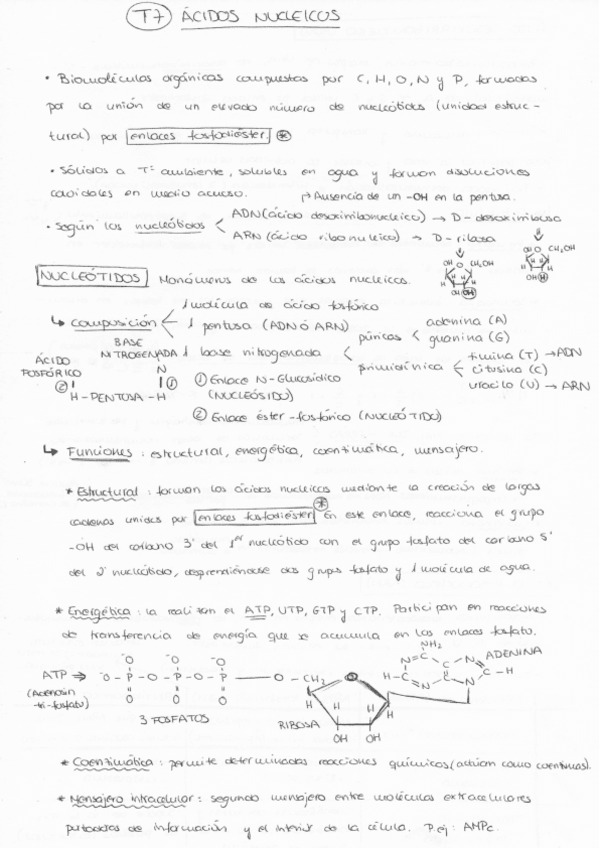 T7 ÁCIDOS NUCLEICOS
• Biomoléculas orgánicas compuestas por C, H, O, N y P, formadas
por la unión de un elevado número de nucleótidos (unidad estruc-
tural) por enlaces fosfodiéster. *
• Sólidos a Tª ambiente, solubles en agua y forman disoluciones
coloidales en medio acuoso. → Ausencia de un -OH en la pentosa.
• Según los nucleótidos < ADN (ácido desoxirribonucleico) → D-desoxirribosa
ARN (ácido ribonucleico) → D-ribosa
NUCLEÓTIDOS Monómeros de los ácidos nucleicos.
↳ Composición < 1 molécula de ácido fosfórico
1 pentosa (ADN ó ARN)
1 base nitrogenada < púricas < adenina (A)
guanina (G)
pirimidínica < timina (T) → ADN
citosina (C)
uracilo (U) → ARN
BASE NITROGENADA
ÁCIDO FOSFÓRICO
N
② ①
H-PENTOSA-H
① Enlace N-Glucosídico
(NUCLEÓSIDO)
② Enlace éster-fosfórico (NUCLEÓTIDO)
↳ Funciones: estructural, energética, coenzimática, mensajero.
* Estructural: forman los ácidos nucleicos mediante la creación de largas
cadenas unidas por enlaces fosfodiéster * En este enlace, reacciona el grupo
-OH del carbono 3' del 1er nucleótido con el grupo fosfato del carbono 5'
del 2º nucleótido, desprendiéndose dos grupos fosfato y 1 molécula de agua.
* Energética: la realizan el ATP, UTP, GTP y CTP. Participan en reacciones
de transferencia de energía que se acumula en los enlaces fosfato.
ATP ⇒
(Adenosín
tri-fosfato)
3 FOSFATOS
RIBOSA
ADENINA
* Coenzimática: permite determinadas reacciones químicas (actúan como coenzimas).
* Mensajero intracelular: segundo mensajero entre moléculas extracelulares
portadoras de información y el interior de la célula. P ej: AMPc.